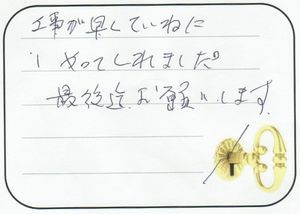 工事が早くていねに
やってくれました。
最後迄お願いします